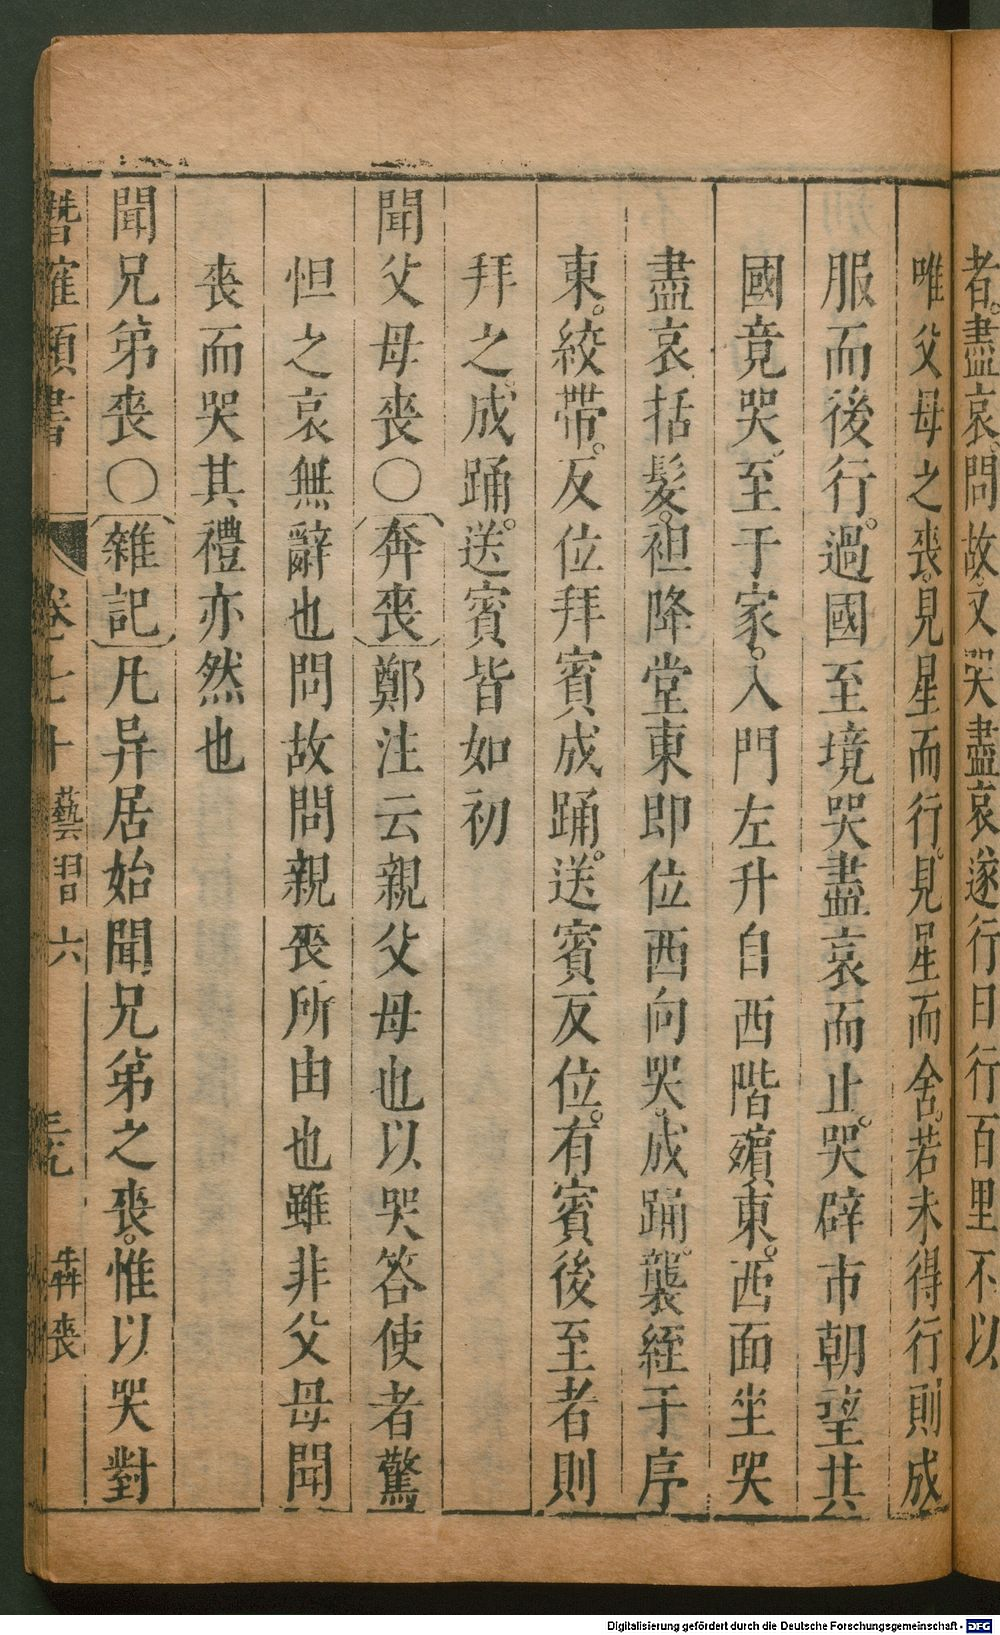 者。盡哀。問故。又哭盡哀。遂行日行百里不以
唯父母之喪。見星而行。見星而舍。若未得行則成
服而後行。過國至境哭盡哀而止。哭辟市朝望其
國竟哭。至于家。入門左升自西階殯東。西面坐哭
盡哀括髮。袒降堂東即位西向哭。成踊。襲絰于序
東。絞帶。反位拜賓成踊。送賓反位。有賓後至者則
拜之。成踊。送賓皆如初
聞父母喪〇〔奔喪〕鄭注云親父母也以哭答使者驚
怛之哀無辭也問故問親喪所由也雖非父母聞
喪而哭其禮亦然也
聞兄弟喪〇〔雜記〕凡异居始聞兄弟之喪。惟以哭對
潛確類書 卷七十 藝習六 三九 奔喪
Digitalisierung gefördert durch die Deutsche Forschungsgemeinschaft - DFG